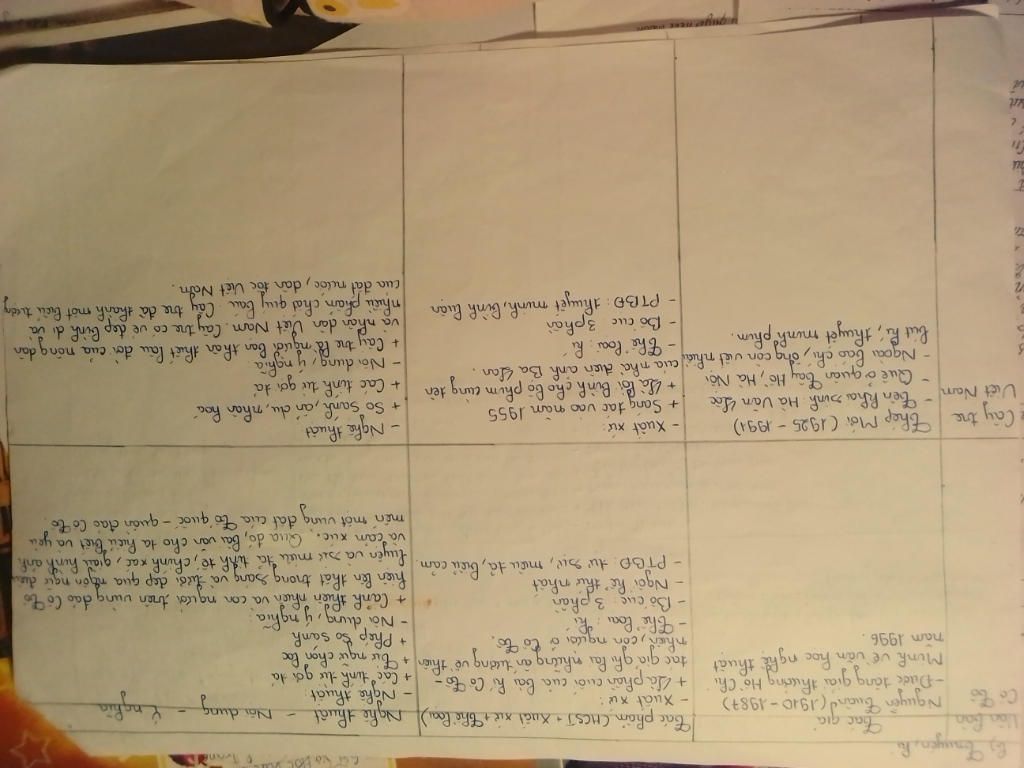 b) Truyện, kí
Văn bản
Tác giả
Tác phẩm (HCST + Xuất xứ + Thể loại)
Nghệ thuật - Nội dung - Ý nghĩa
Cô Tô
Nguyễn Tuân (1910 - 1987)
- Được tặng giải thưởng Hồ Chí
Minh về văn học nghệ thuật
năm 1996.
- Xuất xứ:
+ Là phần cuối của bài kí Cô Tô -
tác giả ghi lại những ấn tượng về thiên
nhiên, con người ở Cô Tô.
- Thể loại: kí
- Bố cục: 3 phần
- Ngôi kể thứ nhất
- PTBĐ: tự sự, miêu tả, biểu cảm.
- Nghệ thuật:
+ Các tính từ gợi tả
+ Từ ngữ chọn lọc
+ Phép so sánh
- Nội dung, ý nghĩa:
+ Cảnh thiên nhiên và con người trên vùng đảo Cô Tô
hiện lên thật trong sáng và tươi đẹp qua ngôn ngữ điêu
luyện và sự miêu tả tinh tế, chính xác, giàu hình ảnh
và cảm xúc. Qua đó, bài văn cho ta hiểu biết và yêu
mến một vùng đất của Tổ quốc - quần đảo Cô Tô.
Cây tre
Việt Nam
Thép Mới (1925 - 1991)
- Tên khai sinh Hà Văn Lộc
- Quê ở quận Tây Hồ, Hà Nội
- Ngoài báo chí, ông còn viết nhiều
bút kí, thuyết minh phim.
- Xuất xứ:
+ Sáng tác vào năm 1955
+ Là lời bình cho bộ phim cùng tên
của nhà điện ảnh Ba Lan.
- Thể loại: kí
- Bố cục: 3 phần
- PTBĐ: thuyết minh, bình luận
- Nghệ thuật
+ So sánh, ẩn dụ, nhân hóa
+ Các tính từ gợi tả
- Nội dung, ý nghĩa:
+ Cây tre là người bạn thân thiết lâu đời của nông dân
và nhân dân Việt Nam. Cây tre có vẻ đẹp bình dị và
nhiều phẩm chất quý báu. Cây tre đã thành một biểu tượng
của đất nước, dân tộc Việt Nam.